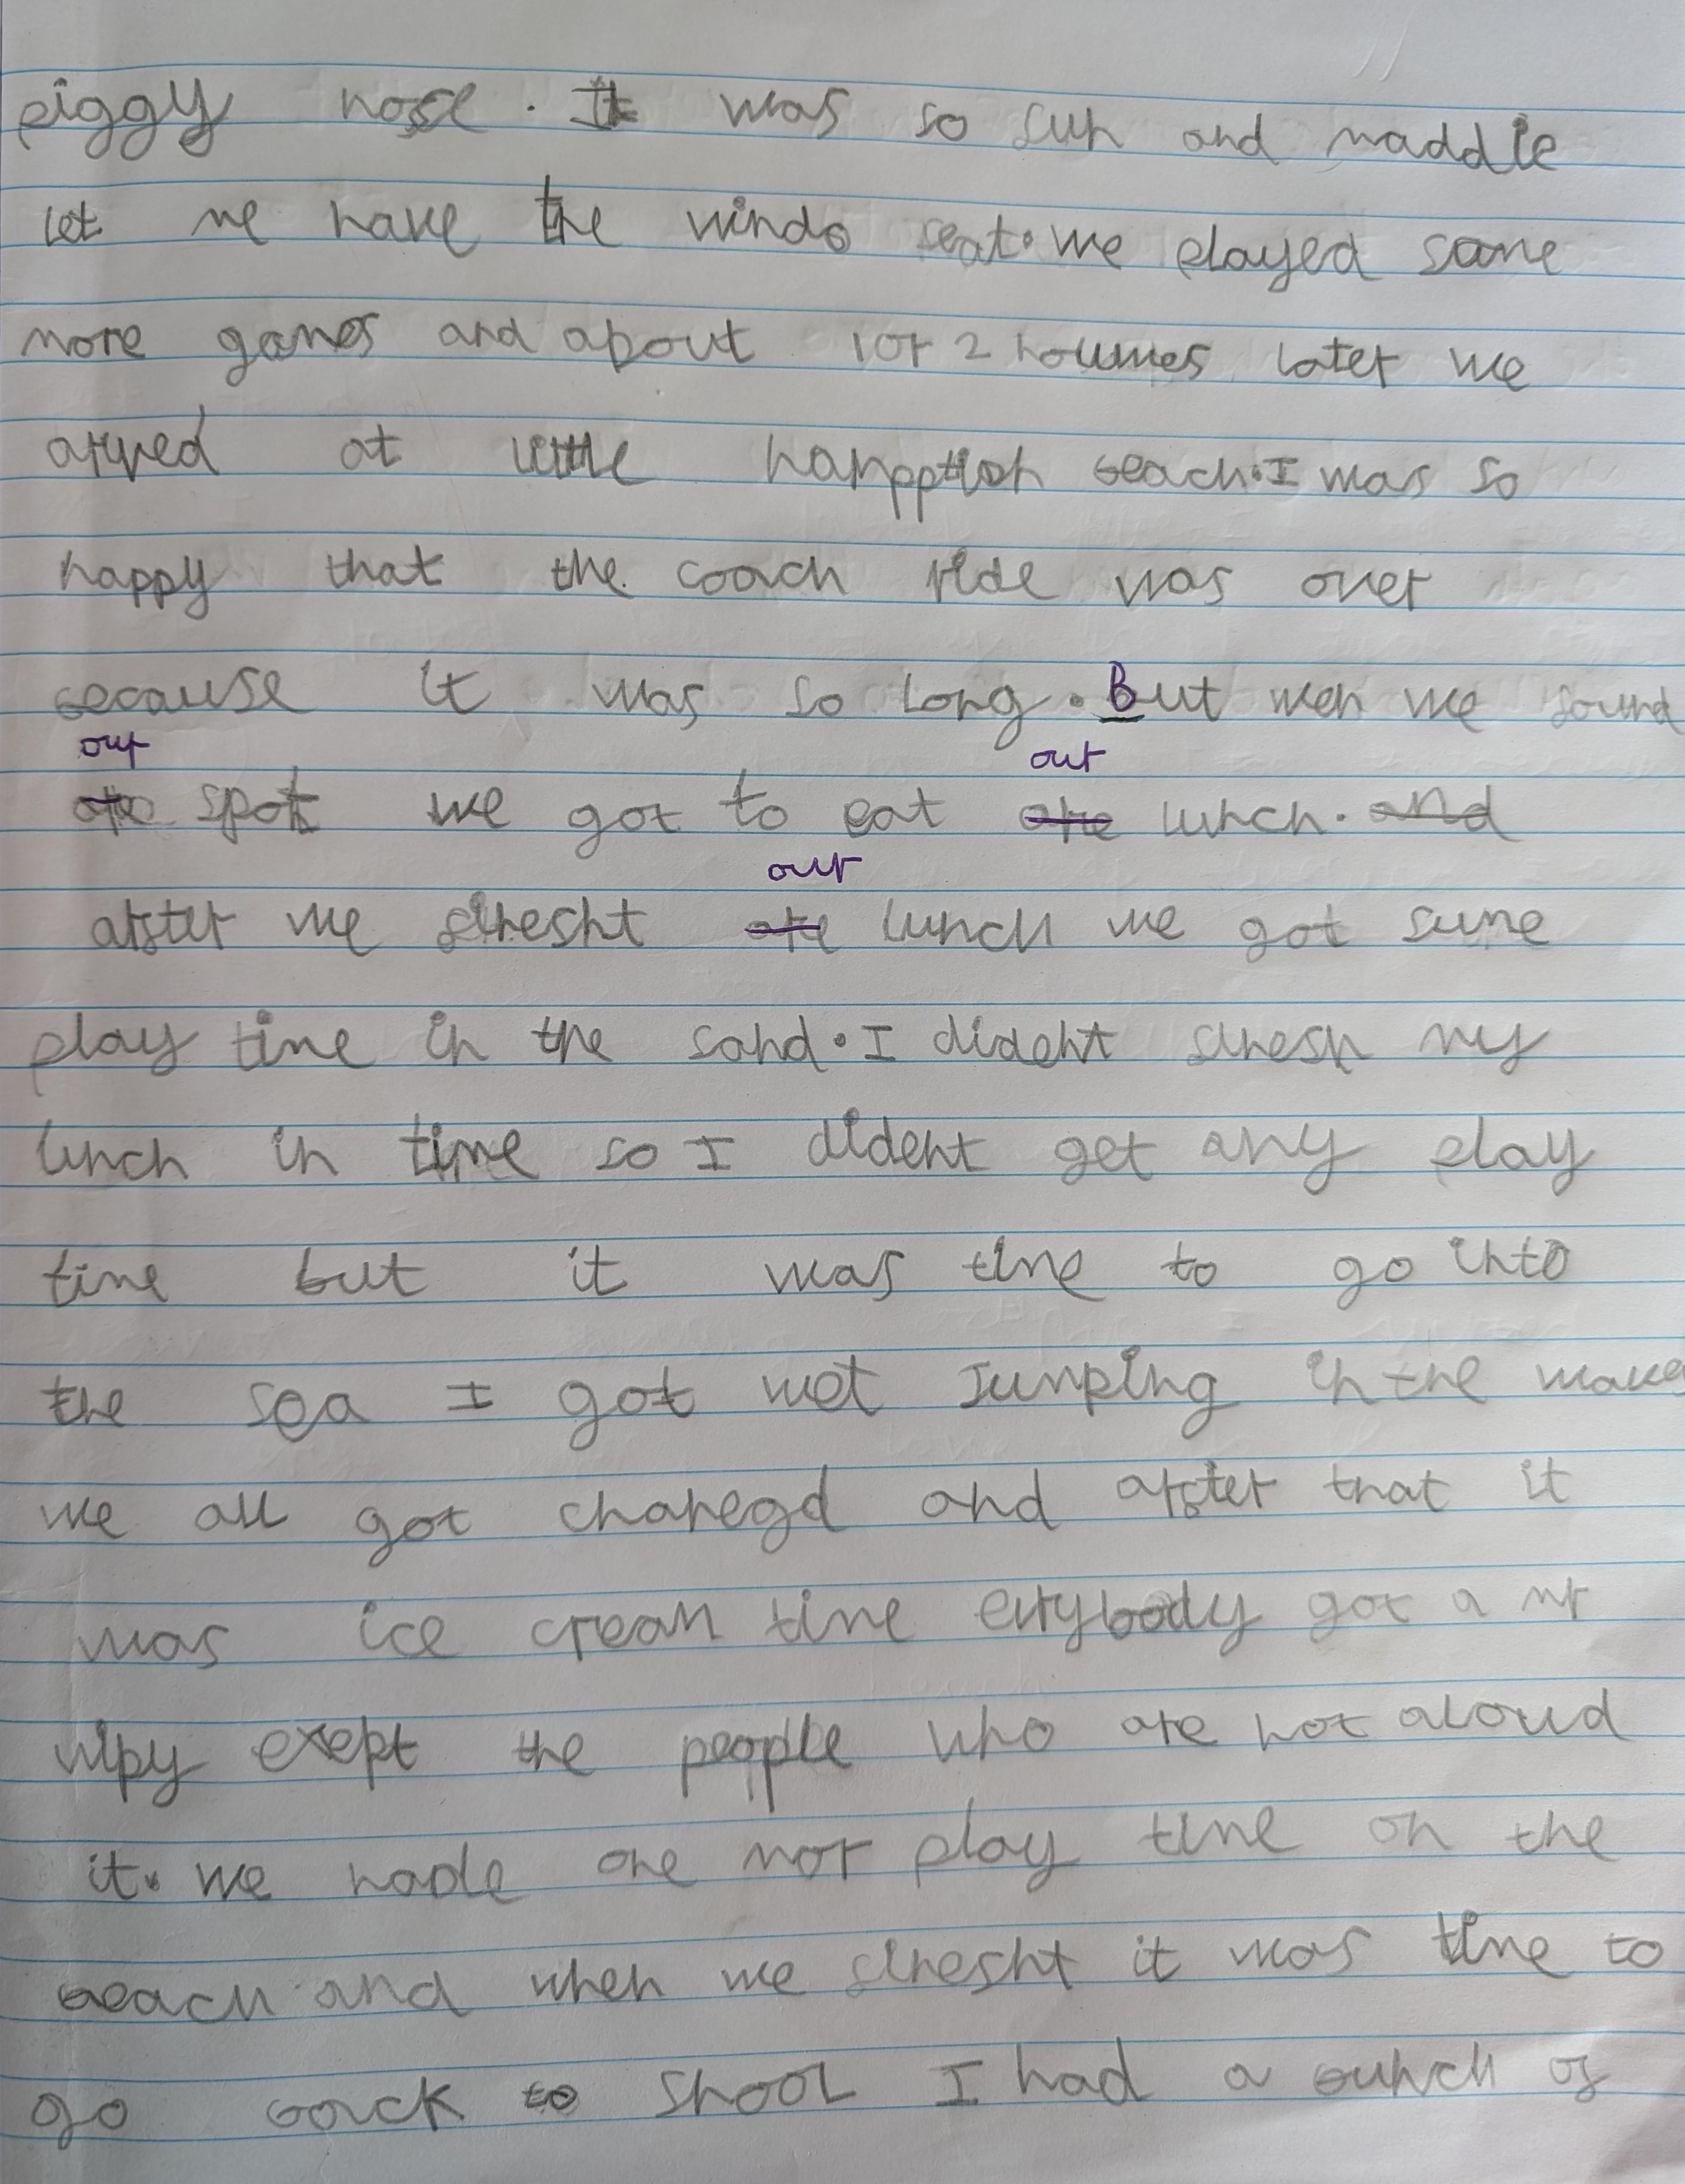 piggy nose. It was so fun and maddie
let me have the windo seat. we played some
more games and about 1 or 2 houwes later we
arived at little hamppton beach. I was so
happy that the coach ride was over
because it was so long. But wen we found
our
are spot we got to eat are lunch. and
our
our
arfter we finesht are lunch we got sume
play time in the sand. I dident finesh my
lunch in time so I dident get any play
time but it was time to go into
the sea I got wet Jumping in the waves
we all got chanegd and arfter that it
was ice cream time erybody got a mr
wipy exept the people who are not aloud
it. we hade one mor play time on the
beach and when we finesht it was time to
go back to shool I had a bunch of